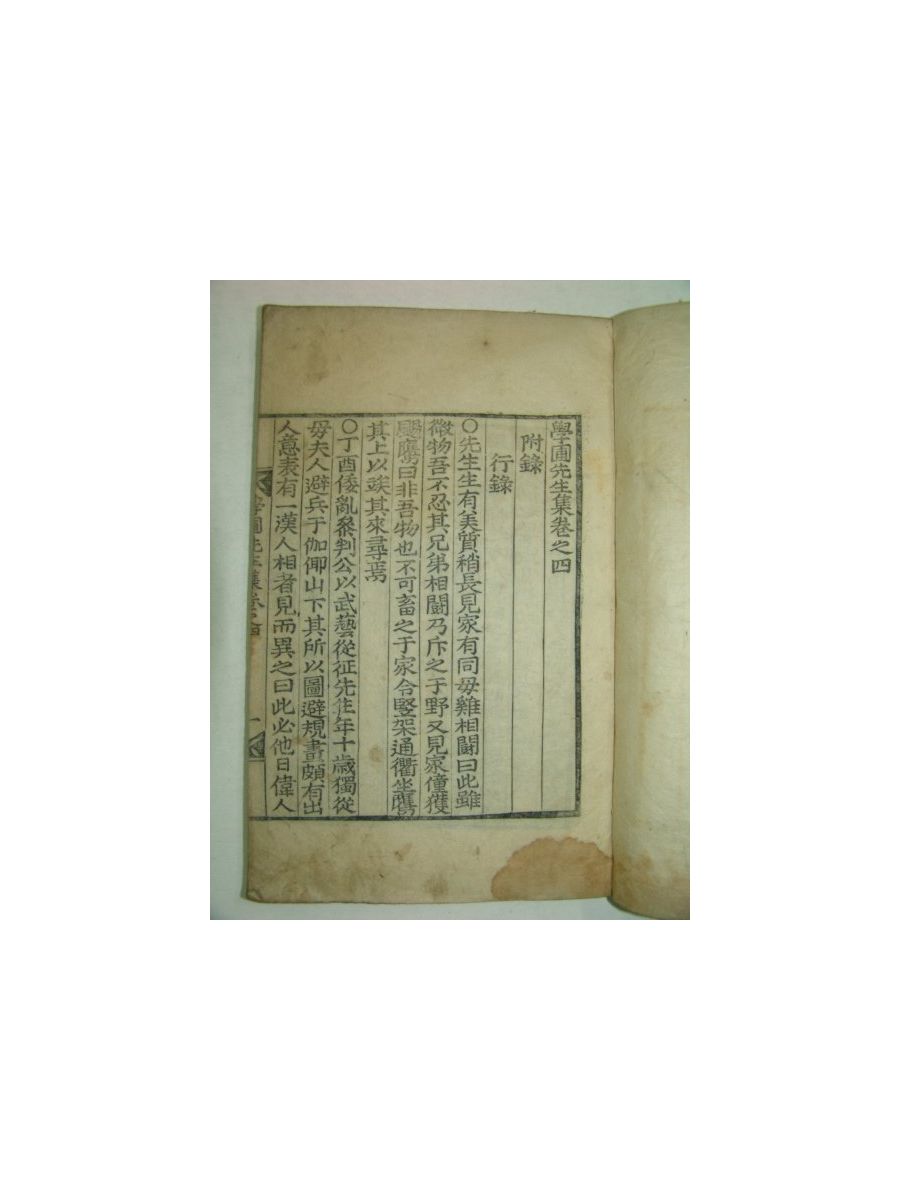 學圃先生集卷之四
附錄
行錄
○先生生有美質稍長見家有同母雞相鬪曰此雖
微物吾不忍其兄弟相鬪乃斥之于野又見家僮獲
鷹曰非吾物也不可畜之于家令竪架通衢坐鷹
其上以竢其來尋焉
○丁酉倭亂叅判公以武藝從征先生年十歲獨從
母夫人避兵于伽倻山下其所以圖避規畫頗有出
人意表有一漢人相者見而異之曰此必他日偉人
學圃先生集卷之四
一